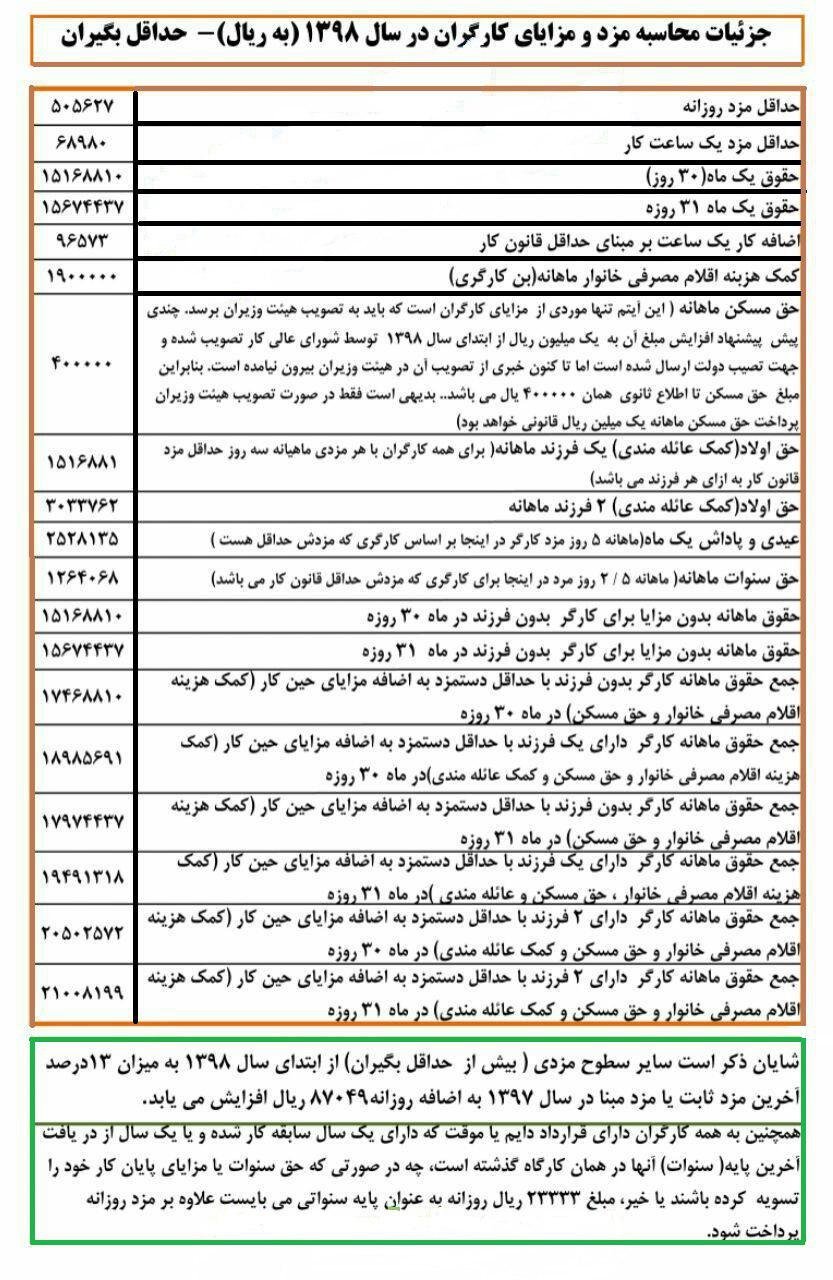 جزئیات محاسبه مزد و مزایای کارگران در سال ۱۳۹۸ (به ریال)– حداقل بگیران
حداقل مزد روزانه ۵۰۵۶۲۷
حداقل مزد یک ساعت کار ۶۸۹۸۰
حقوق یک ماه(۳۰ روز) ۱۵۱۶۸۸۱۰
حقوق یک ماه ۳۱ روزه ۱۵۶۷۴۴۳۷
اضافه کار یک ساعت بر مبنای حداقل قانون کار ۹۶۵۷۳
کمک هزینه اقلام مصرفی خانوار ماهانه(بن کارگری) ۱۹۰۰۰۰۰
حق مسکن ماهانه ( این آیتم تنها موردی از مزایای کارگران است که باید به تصویب هیئت وزیران برسد. چندی
پیش پیشنهاد افزایش مبلغ آن به یک میلیون ریال از ابتدای سال ۱۳۹۸ توسط شورای عالی کار تصویب شده و
جهت تصیب دولت ارسال شده است اما تا کنون خبری از تصویب آن در هیئت وزیران بیرون نیامده است. بنابراین
مبلغ حق مسکن تا اطلاع ثانوی همان ۴۰۰۰۰۰ یال می باشد.. بدیهی است فقط در صورت تصویب هیئت وزیران
پرداخت حق مسکن ماهانه یک میلین ریال قانونی خواهد بود)
۴۰۰۰۰۰
حق اولاد(کمک عائله مندی) یک فرزند ماهانه( برای همه کارگران با هر مزدی ماهیانه سه روز حداقل مزد
قانون کار به ازای هر فرزند می باشد)
۱۵۱۶۸۸۱
حق اولاد(کمک عائله مندی) ۲ فرزند ماهانه ۳۰۳۳۷۶۲
عیدی و پاداش یک ماه(ماهانه ۵ روز مزد کارگر در اینجا بر اساس کارگری که مزدش حداقل هست ) ۲۵۲۸۱۳۵
حق سنوات ماهانه( ماهانه ۵ / ۲ روز مرد در اینجا برای کارگری که مزدش حداقل قانون کار می باشد) ۱۲۶۴۰۶۸
حقوق ماهانه بدون مزایا برای کارگر بدون فرزند در ماه ۳۰ روزه ۱۵۱۶۸۸۱۰
حقوق ماهانه بدون مزایا برای کارگر بدون فرزند در ماه ۳۱ روزه ۱۵۶۷۴۴۳۷
جمع حقوق ماهانه کارگر بدون فرزند با حداقل دستمزد به اضافه مزایای حین کار (کمک هزینه
اقلام مصرفی خانوار و حق مسکن) در ماه ۳۰ روزه
۱۷۴۶۸۸۱۰
جمع حقوق ماهانه کارگر دارای یک فرزند با حداقل دستمزد به اضافه مزایای حین کار (کمک
هزینه اقلام مصرفی خانوار و حق مسکن و کمک عائله مندی)در ماه ۳۰ روزه
۱۸۹۸۵۶۹۱
جمع حقوق ماهانه کارگر بدون فرزند با حداقل دستمزد به اضافه مزایای حین کار (کمک هزینه
اقلام مصرفی خانوار و حق مسکن) در ماه ۳۱ روزه
۱۷۹۷۴۴۳۷
جمع حقوق ماهانه کارگر دارای یک فرزند با حداقل دستمزد به اضافه مزایای حین کار (کمک
هزینه اقلام مصرفی خانوار ، حق مسکن و عائله مندی )در ماه ۳۱ روزه
۱۹۴۹۱۳۱۸
جمع حقوق ماهانه کارگر دارای ۲ فرزند با حداقل دستمزد به اضافه مزایای حین کار (کمک هزینه
اقلام مصرفی خانوار و حق مسکن و کمک عائله مندی) در ماه ۳۰ روزه
۲۰۵۰۲۵۷۲
جمع حقوق ماهانه کارگر دارای ۲ فرزند با حداقل دستمزد به اضافه مزایای حین کار (کمک هزینه
اقلام مصرفی خانوار و حق مسکن و کمک عائله مندی) در ماه ۳۱ روزه
۲۱۰۰۸۱۹۹
شایان ذکر است سایر سطوح مزدی ( بیش از حداقل بگیران) از ابتدای سال ۱۳۹۸ به میزان ۱۳درصد
آخرین مزد ثابت یا مزد مبنا در سال ۱۳۹۷ به اضافه روزانه۸۷۰۴۹ ریال افزایش می یابد.
همچنین به همه کارگران دارای قرارداد دایم یا موقت که دارای یک سال سابقه کار شده و یا یک سال از در یافت
آخرین پایه( سنوات) آنها در همان کارگاه گذشته است، چه در صورتی که حق سنوات یا مزایای پایان کار خود را
تسویه کرده باشند یا خیر، مبلغ ۲۳۳۳۳ ریال روزانه به عنوان پایه سنواتی می بایست علاوه بر مزد روزانه
پرداخت شود.